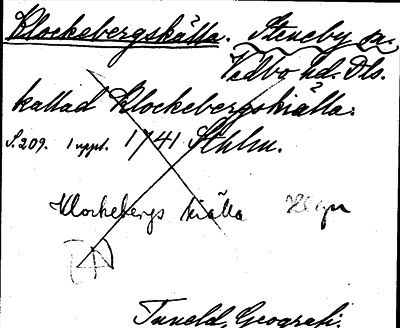 Klockebergskälla. Steneby sn.
Vedbo hd. Dls.
kallad Klockebergskiälla.
S. 209. 1 uppl. 1741 Sthlm.
Klockebergs kiälla
Tuneld, Geografi.